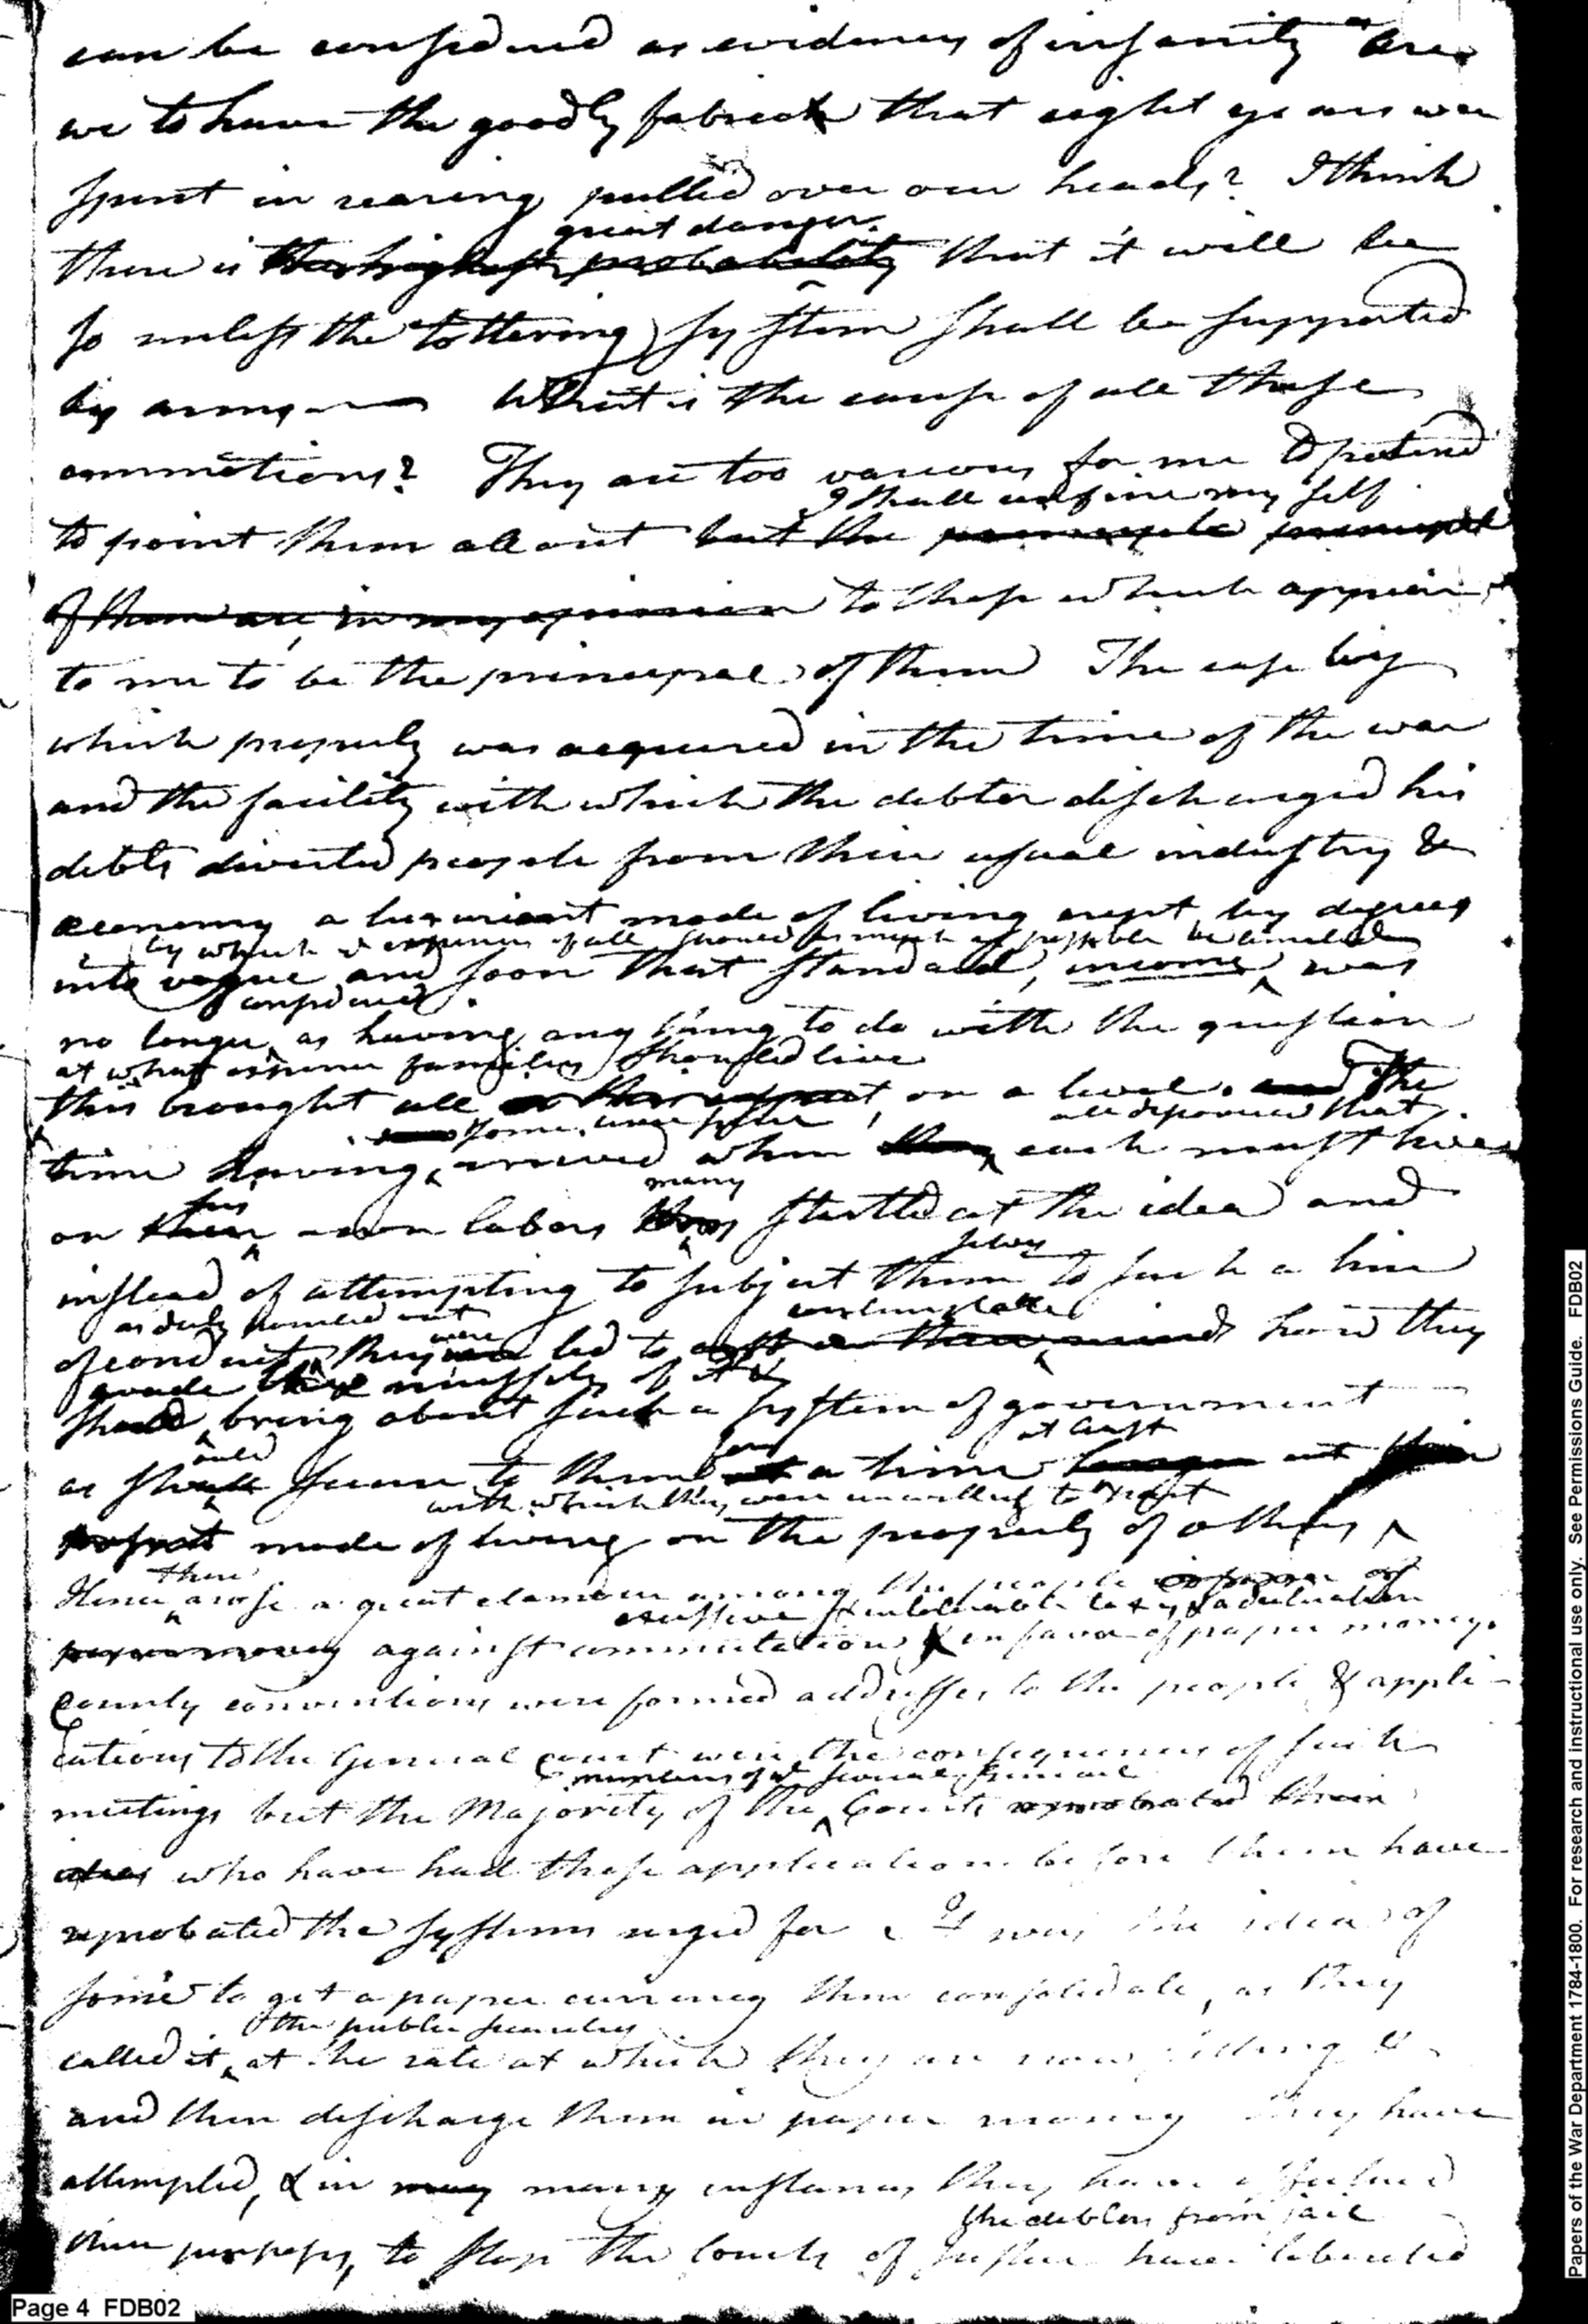 can be considered as evidences of insanity "are
we to have the goodly fabrick that eight years were
spent in rearing pulled over our heads? I think
great danger
there is the highest probability that it will be
so unless the tottering system shall be supported
by arms — What is the cause of all these
commotions? They are too various for me to pretend
I shall confine my self
to point them all out but the principle principal
of them are, in my opinion to those which appear
to me to be the principal of them The ease by
which property was acquired in the time of the war
and the facility with which the debtor discharged his
debts diverted people from their usual industry &
economy a luxuriant mode of living crept by degrees
by which the expences of all should as much as possible be limited
into vogue and soon that standard, income, was
considered
no longer as having any thing to do with the question
at what expence families should live
this brought all on a level. and The
some where all discovered that
time having arrived when they each must live
his many
on their own labors they startled at the idea and
selves
instead of attempting to subject them to such a line
as duty pointed out contemplate
were
of conduct, they led to cast in their minds how they
evade the necessity of it &
should bring about such a system of government
ould for at least
as shall secure to them a time longer out their
with which they were unwilling to part
mode of living on the property of others
there
Hence arose a great clamour among the people in favor of
excessive & intolerable taxes & adulation
paper money against commutation & in favor of paper money.
County conventions were formed addresses to the people & appli-
cations to the General court were the consequences of such
members of the several
meetings but the Majority of the Courts reprobated their
ideas who have had these applications before them have
reprobated the systems urged for It was the idea of
some to get a paper currency then consolidate, as they
the public securities
called it, at the rate at which they are now selling &
and then discharge them in paper money They have
attempted, & in many many instances they have effected
the debtors from jail
their purposes, to stop the Courts of justice have liberated
Page 4 FDB02
Papers of the War Department 1784-1800. For research and instructional use only. See Permissions Guide. FDB02